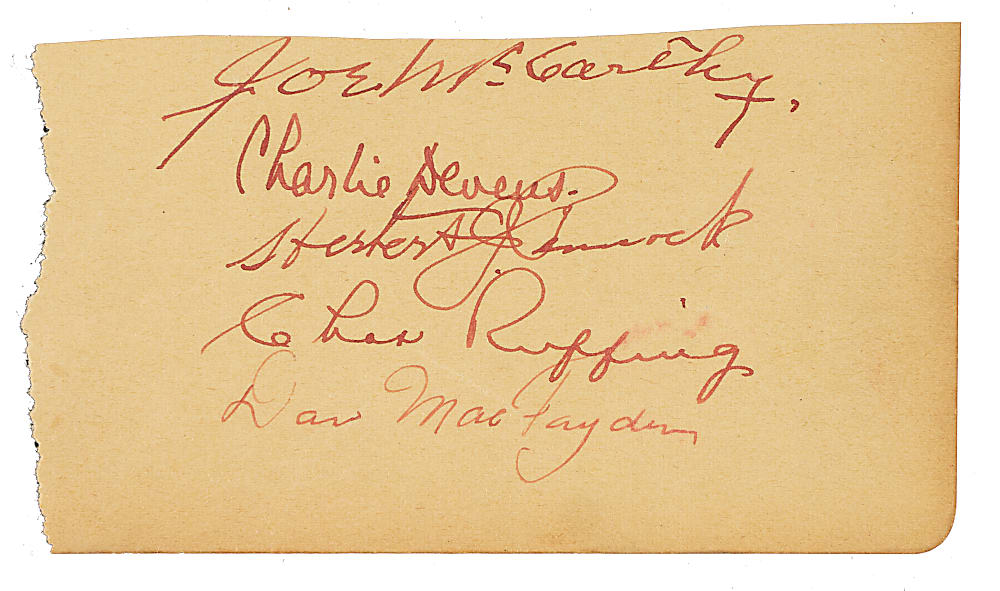 Joe McCarthy.
Charlie Devens.
Herbert J. Pennock
Chas Ruffing
Dan MacFayden